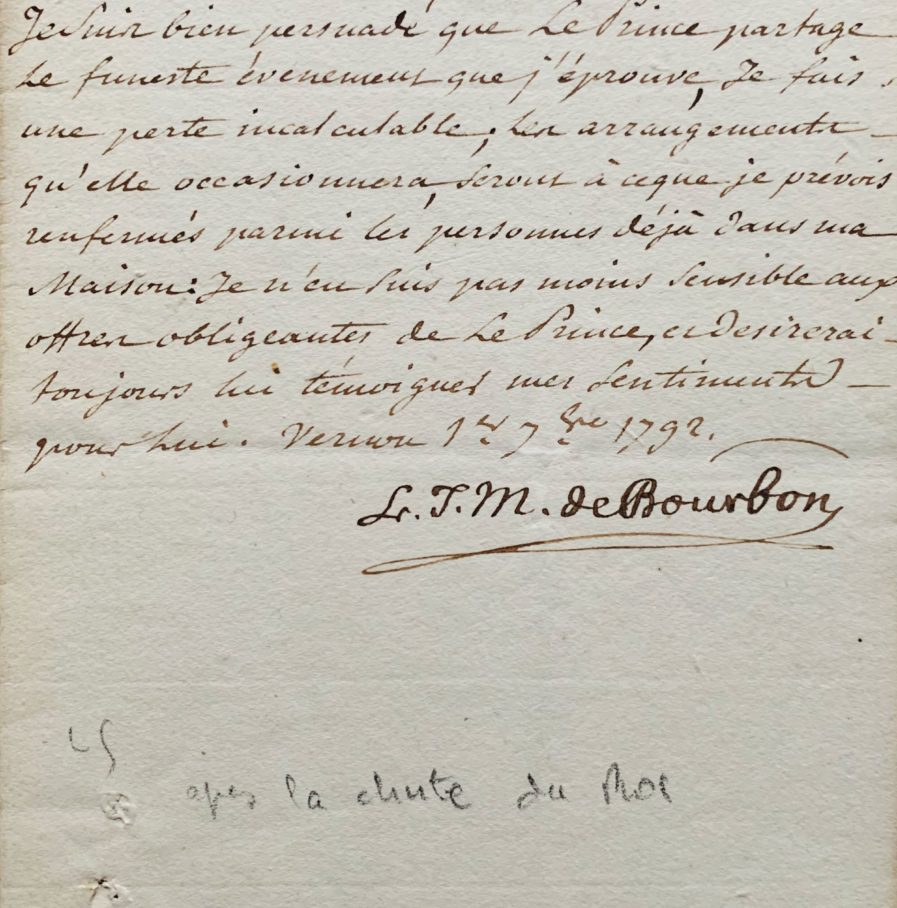 Je Suis bien persuadé que Le Prince partage
Le funeste évenement que j'éprouve, Je fais
une perte incalculable; Les arrangements
qu'elle occasionnera, Seront à ceque je prévois
renfermés parmi les personnes déjà dans ma
Maison: Je n'en Suis pas moins Sensible aux
offres obligeantes de Le Prince, et Desirerai
toujours lui témoigner mes Sentiments
pour Lui. Vernon 1er 7bre 1792.
L. J. M. de Bourbon
après la chute du Roi